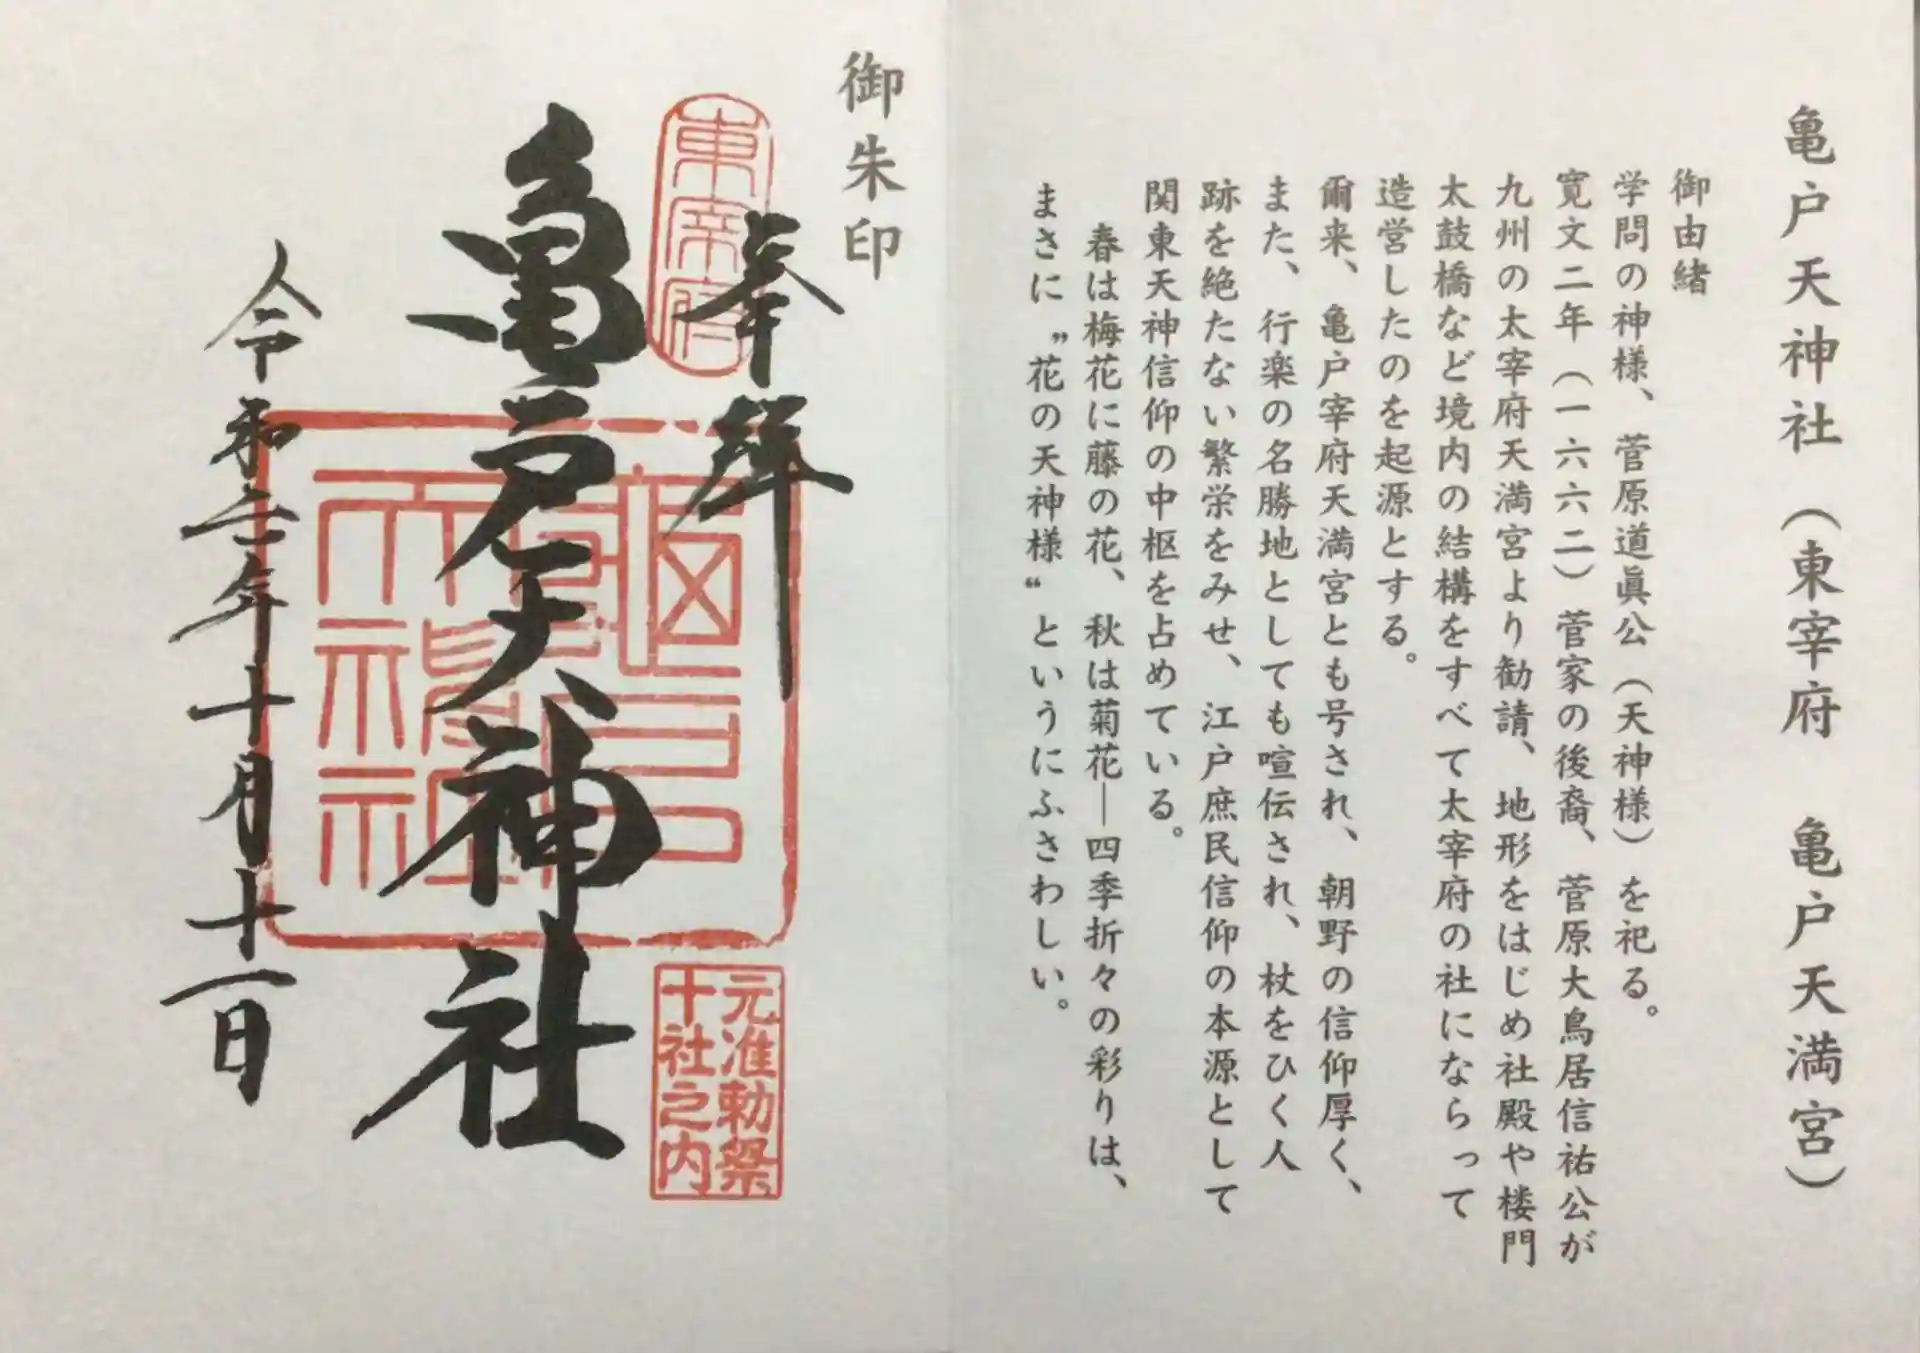 亀戸天神社（東宰府　亀戸天満宮）
御由緒
学問の神様、菅原道眞公（天神様）を祀る。
寛文二年（一六六二）菅家の後裔、菅原大鳥居信祐公が
九州の太宰府天満宮より勧請、地形をはじめ社殿や楼門
太鼓橋など境内の結構をすべて太宰府の社にならって
造営したのを起源とする。
爾来、亀戸宰府天満宮とも号され、朝野の信仰厚く、
また、行楽の名勝地としても喧伝され、杖をひく人
跡を絶たない繁栄をみせ、江戸庶民信仰の本源として
関東天神信仰の中枢を占めている。
春は梅花に藤の花、秋は菊花―四季折々の彩りは、
まさに〝花の天神様〟というにふさわしい。
御朱印
奉拝
東宰府
元准勅祭
十社之内
亀戸天神社
令和二年十月十一日